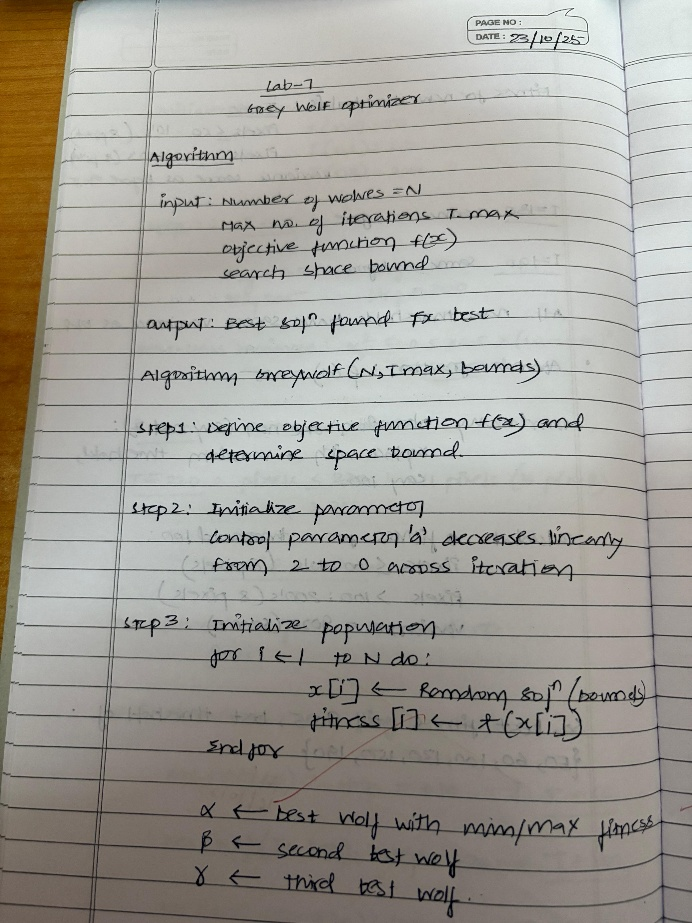 PAGE NO :
DATE : 23/10/25
Lab-7
Grey Wolf optimizer
Algorithm
input: Number of wolves = N
Max no. of iterations T-max
objective function f(x)
search space bound
output: Best solⁿ found fx best
Algorithm Greywolf (N, Tmax, bounds)
step1: Define objective function f(x) and
determine space bound.
step2: Initialize parameter
control parameter 'a' decreases linearly
from 2 to 0 across iteration
step3: Initialize population
for i ← 1 to N do:
x[i] ← Random solⁿ (bounds)
fitness [i] ← f(x[i])
End for
α ← best wolf with min/max fitness
β ← second best wolf
γ ← third best wolf.